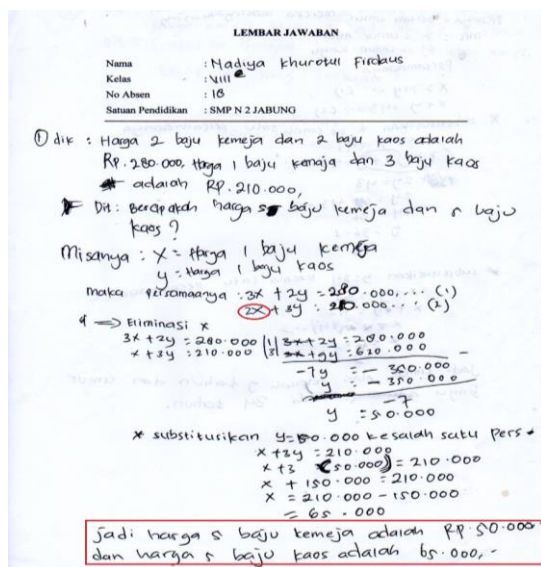 LEMBAR JAWABAN
Nama : Nadiya Khurotul Firdaus
Kelas : VIII e
No Absen : 18
Satuan Pendidikan : SMP N 2 JABUNG
① dik : Harga 2 baju kemeja dan 2 baju kaos adalah
Rp. 280.000, Harga 1 baju kemaja dan 3 baju kaos
adalah RP. 210.000,
Dit : Berapakah harga 5 baju kemeja dan 5 baju
kaos ?
Misanya : X = Harga 1 baju kemeja
y = Harga 1 baju kaos
maka persamaanya : 3x + 2y = 280.000,... (1)
2x + 3y : 210.000... (2)
→ Eliminasi x
3x + 2y = 280.000 |1| 3x + 2y = 280.000
x + 3y = 210.000 |3| 3x + 9y = 630.000 -
-7y = - 350.000
y = - 350.000
-7
y = 50.000
* substitusikan y=50.000 kesalah satu pers
x + 3y = 210.000
x + 3 (50.000) = 210.000
x + 150.000 = 210.000
x = 210.000 - 150.000
= 65.000
jadi harga 5 baju kemeja adalah RP. 50.000
dan harga 5 baju kaos adalah 65.000,-